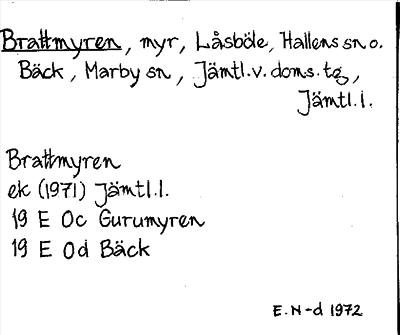 Brattmyren, myr, Låsböle, Hallens sn o.
Bäck, Marby sn, Jämtl.v.doms.tg,
Jämtl.l.
Brattmyren
ek (1971) Jämtl.l.
19 E 0c Gurumyren
19 E 0d Bäck
E.N-d 1972